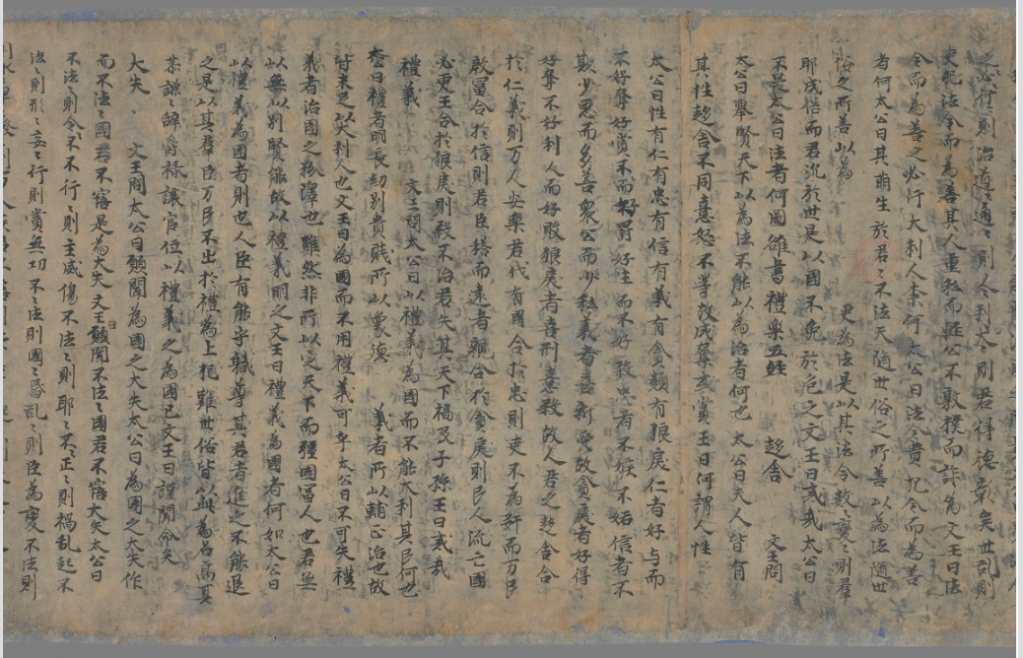 之必行則治道通〻則令利太則君得德彰矣世乱則
吏死法令而為善其人重私而輕公不敦撲而詐為文王曰法
令而為善之必行大利人柰何太公曰法令貴犯令而為善
者何太公曰其萌生於君〻不法天随世俗之所善以為法随世
俗之所善以為 更為法是以其法令數變〻則羣
耶成俗而君沉於世是以國不免於危之文王曰㦲㦲太公曰
太公曰法者何圖雒書禮樂五経 趍舍 文王問
太公曰舉賢天下以為法不能以為治者何也 太公曰夫人皆有
其性趍舍不同意怒不等故成奪或賞王曰何謂人性
太公曰性有仁有忠有信有義有貪賴有狼戾仁者好与而
不好奪好賞不而好罰好生而不好煞忠者不嫉不妬信者不
欺少惡而多善衆公而少私義者喜新故貪戾者好得
好奪不好利人而好敗狼戾者喜刑喜殺故人君之趍舍合
於仁義則万人安樂君代有國合於忠則吏不為奸而万民
啟冨合於信則君臣搭而遠者親合於貪戾則民人流亡國
必更王合於狼戾則殺不治君失其天下禍及子孫王曰㦲㦲
禮義 文王問太公曰以禮義為國而不能大利其民何也
答曰禮者明長幼別貴賤所以象德 義者所以輔正治也故
付来更以矣利人也文王曰為國而不用禮義可乎太公曰不可失禮
義者治國之粉澤也雖然非所以安天下而強國冨人也君無
以無以別賢故以禮義明之文王曰禮義為國者何如太公曰
以禮義為國者則也人臣有能守軄尊其君者進之不能退
之是以其羣臣万民不出於禮為上犯雖世俗皆以此為名高其
恭謙〻辭爵禄讓官位以禮義之為國已文王曰謹聞命矣
大失 文王問太公曰願聞為國之大失太公曰為國之大失作
而不法〻國君不寤是為大失文王曰願聞不法〻國君不寤大矣太公曰
不法〻則令〻不不行〻則主威傷不法〻則耶〻不〻正〻則禍乱起不
法〻則形〻妄〻行則賞無功不〻法則國〻昏乱〻則臣為變不法則